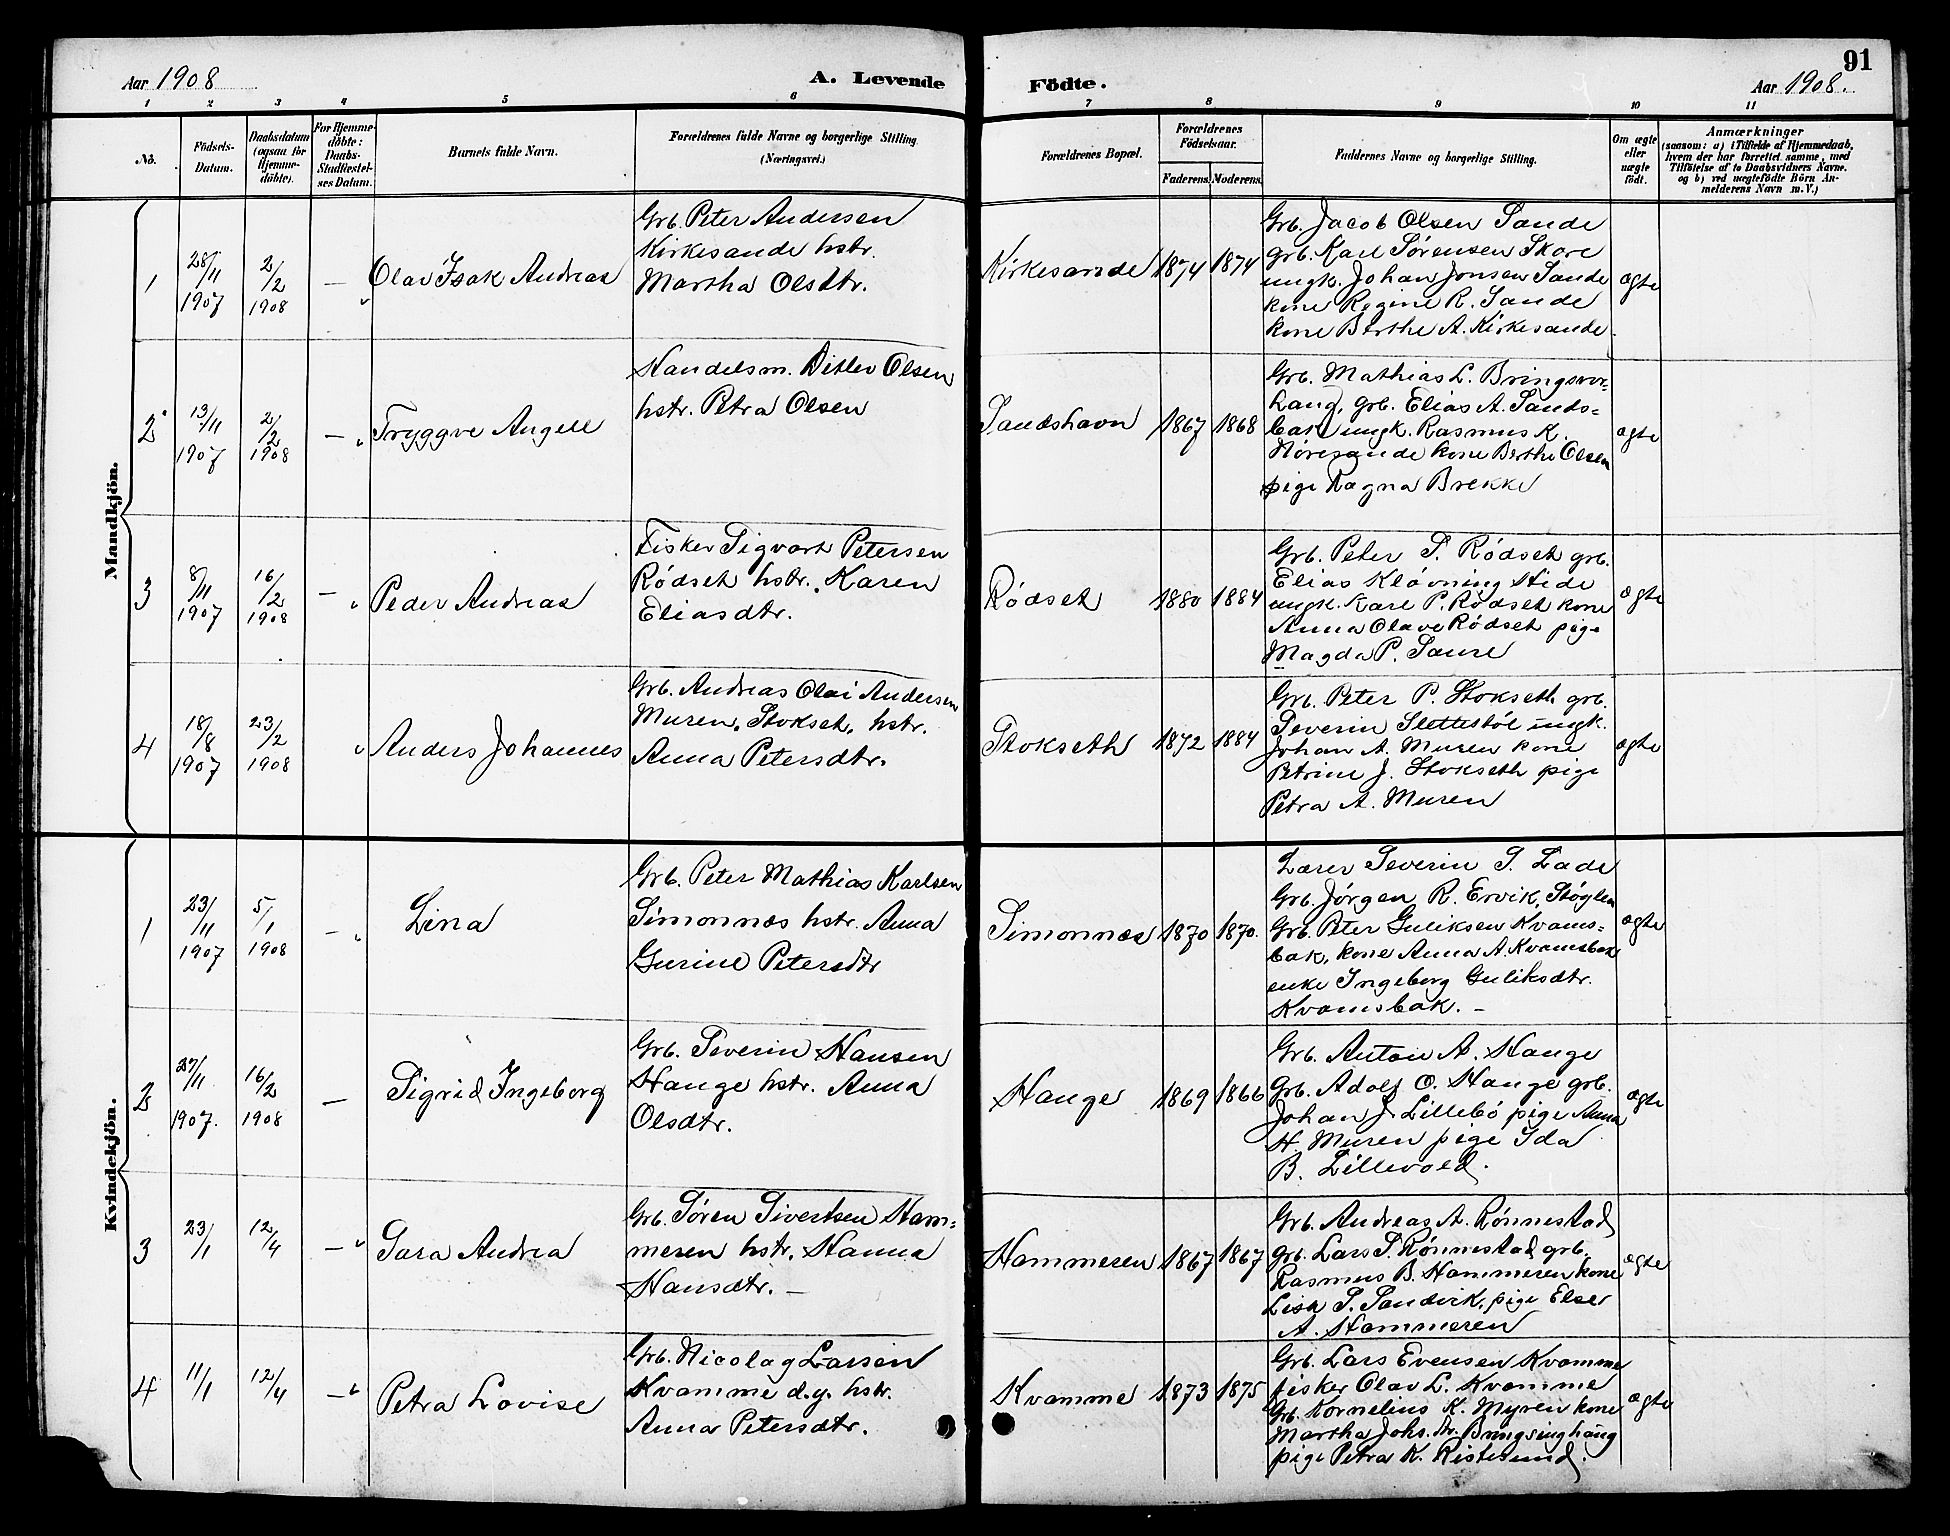 91
Aar 1908
A. Levende
Födte.
Aar 1908.
1 2 3 4 5 6 7 8 9 10 11
No.
Födsels-Datum.
Daabsdatum (ogsaa for Hjemme-döbte).
For Hjemme-döbte: Daabs-Stadfæstel-ses Datum.
Barnets fulde Navn.
Forældrenes fulde Navne og borgerlige Stilling. (Næringsvei.)
Forældrenes Bopæl.
Forældrenes Födselsaar.
Faderens. Moderens.
Faddernes Navne og borgerlige Stilling.
Om ægte eller uægte födt.
Anmærkninger
(saasom: a) i Tilfælde af Hjemmedaab,
hvem der har forrettet samme, med
Tilföielse af to Daabsvidners Navne.
og b) ved uægtefödte Börn An-
melderens Navn m. V.)
Mandkjön.
1
28/11 1907
2/2 1908
—
Olav Isak Andreas
Grb. Peter Andersen
Kirkesande hstr.
Martha Olsdtr.
Kirkesande
1874 1874
Grb. Jacob Olsen Sande
grb. Karl Sørensen Skare
ungk. Johan Jonsen Sande
kone Regine R. Sande
kone Berthe A. Kirkesande.
ægte
2
13/11 1907
2/2 1908
—
Tryggve Angell
Handelsm. Ditlev Olsen
hstr. Petra Olsen
Sandshavn
1867 1868
Grb. Mathias L. Bringsvor-
haug, grb. Elias A. Sands-
bak ungk. Rasmus K.
Nøresande kone Berthe Olsen
pige Ragna Brekke
ægte
3
8/11 1907
16/2 1908
—
Peder Andreas
Fisker Sigvart Petersen
Rødset hstr. Karen
Eliasdtr.
Rødset
1880 1884
Grb. Peter S. Rødset grb.
Elias Kløvning Hide
ungk. Karl P. Rødset kone
Anna Olave Rødset pige
Magda P. Saure
ægte
4
18/8 1907
23/2 1908
Anders Johannes
Grb. Andreas Olai Andersen
Muren, Stokset, hstr.
Anna Petersdtr.
Stokseth
1872 1884
Grb. Peter P. Stokseth grb.
Severin Slettestøl ungk.
Johan A. Muren kone
Petrine J. Stokseth pige
Petra A. Muren
ægte
Kvindekjön.
1
23/11 1907
5/1 1908
—
Lina
Grb. Peter Mathias Karlsen
Simonnæs hstr. Anna
Gurine Petersdtr
Simonnæs
1870 1870.
Lærer Severin S. Lade
Grb. Jørgen R. Ervik, Støylen
Grb. Peter Guliksen Kvams-
bak, kone Anna A. Kvamsbak
enke Ingeborg Guliksdtr.
Kvamsbak. —
ægte
2
27/11 1907.
16/2 1908
—
Sigrid Ingeborg
Grb. Severin Hansen
Hauge hstr. Anna
Olsdtr.
Hauge
1869 1866
Grb. Anton A. Hauge
Grb. Adolf O. Hauge grb.
Johan J. Lillebø pige Anna
H. Muren pige Ida
B. Lillevold.
ægte
3
23/1
12/4
—
Sara Andrea
Grb. Søren Sivertsen Ham-
meren hstr. Hanna
Hansdtr. —
Hammeren
1867 1867
Grb. Andreas A. Rønnestad
grb. Lars S. Rønnestad grb.
Rasmus B. Hammeren kone
Lisa S. Sandvik, pige Else
A. Hammeren
ægte
4
11/1
12/4
—
Petra Lovise
Grb. Nicolay Larsen
Kvamme d.y. hstr.
Anna Petersdtr.
Kvamme
1873 1875
Grb. Lars Evensen Kvamme
fisker Olav L. Kvamme
Grb. Kornelius K. Myren kone
Martha Johs. dr. Bringsinghaug
pige Petra K. Ristesund.
ægte